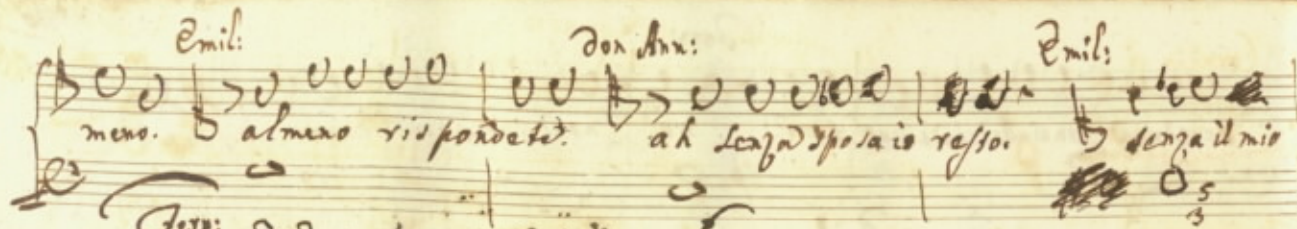 Emil: Don Ann: Emil:
meno. almeno rispondete. ah senza sposa io resto. senza il mio
5
3
Fern: